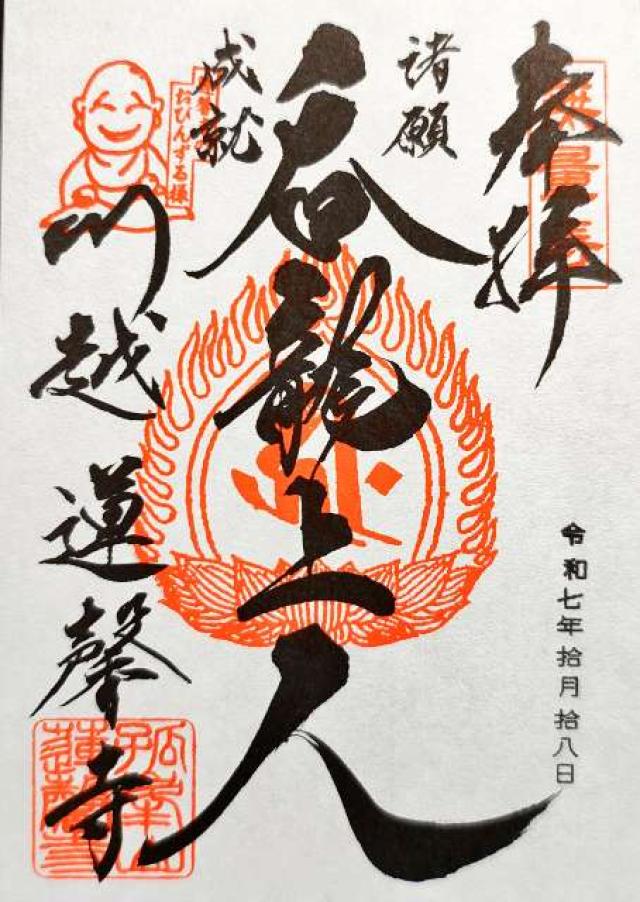 奉拝
諸願
成就
呑龍上人
川越蓮馨寺
おびんずる様
令和七年拾月拾八日